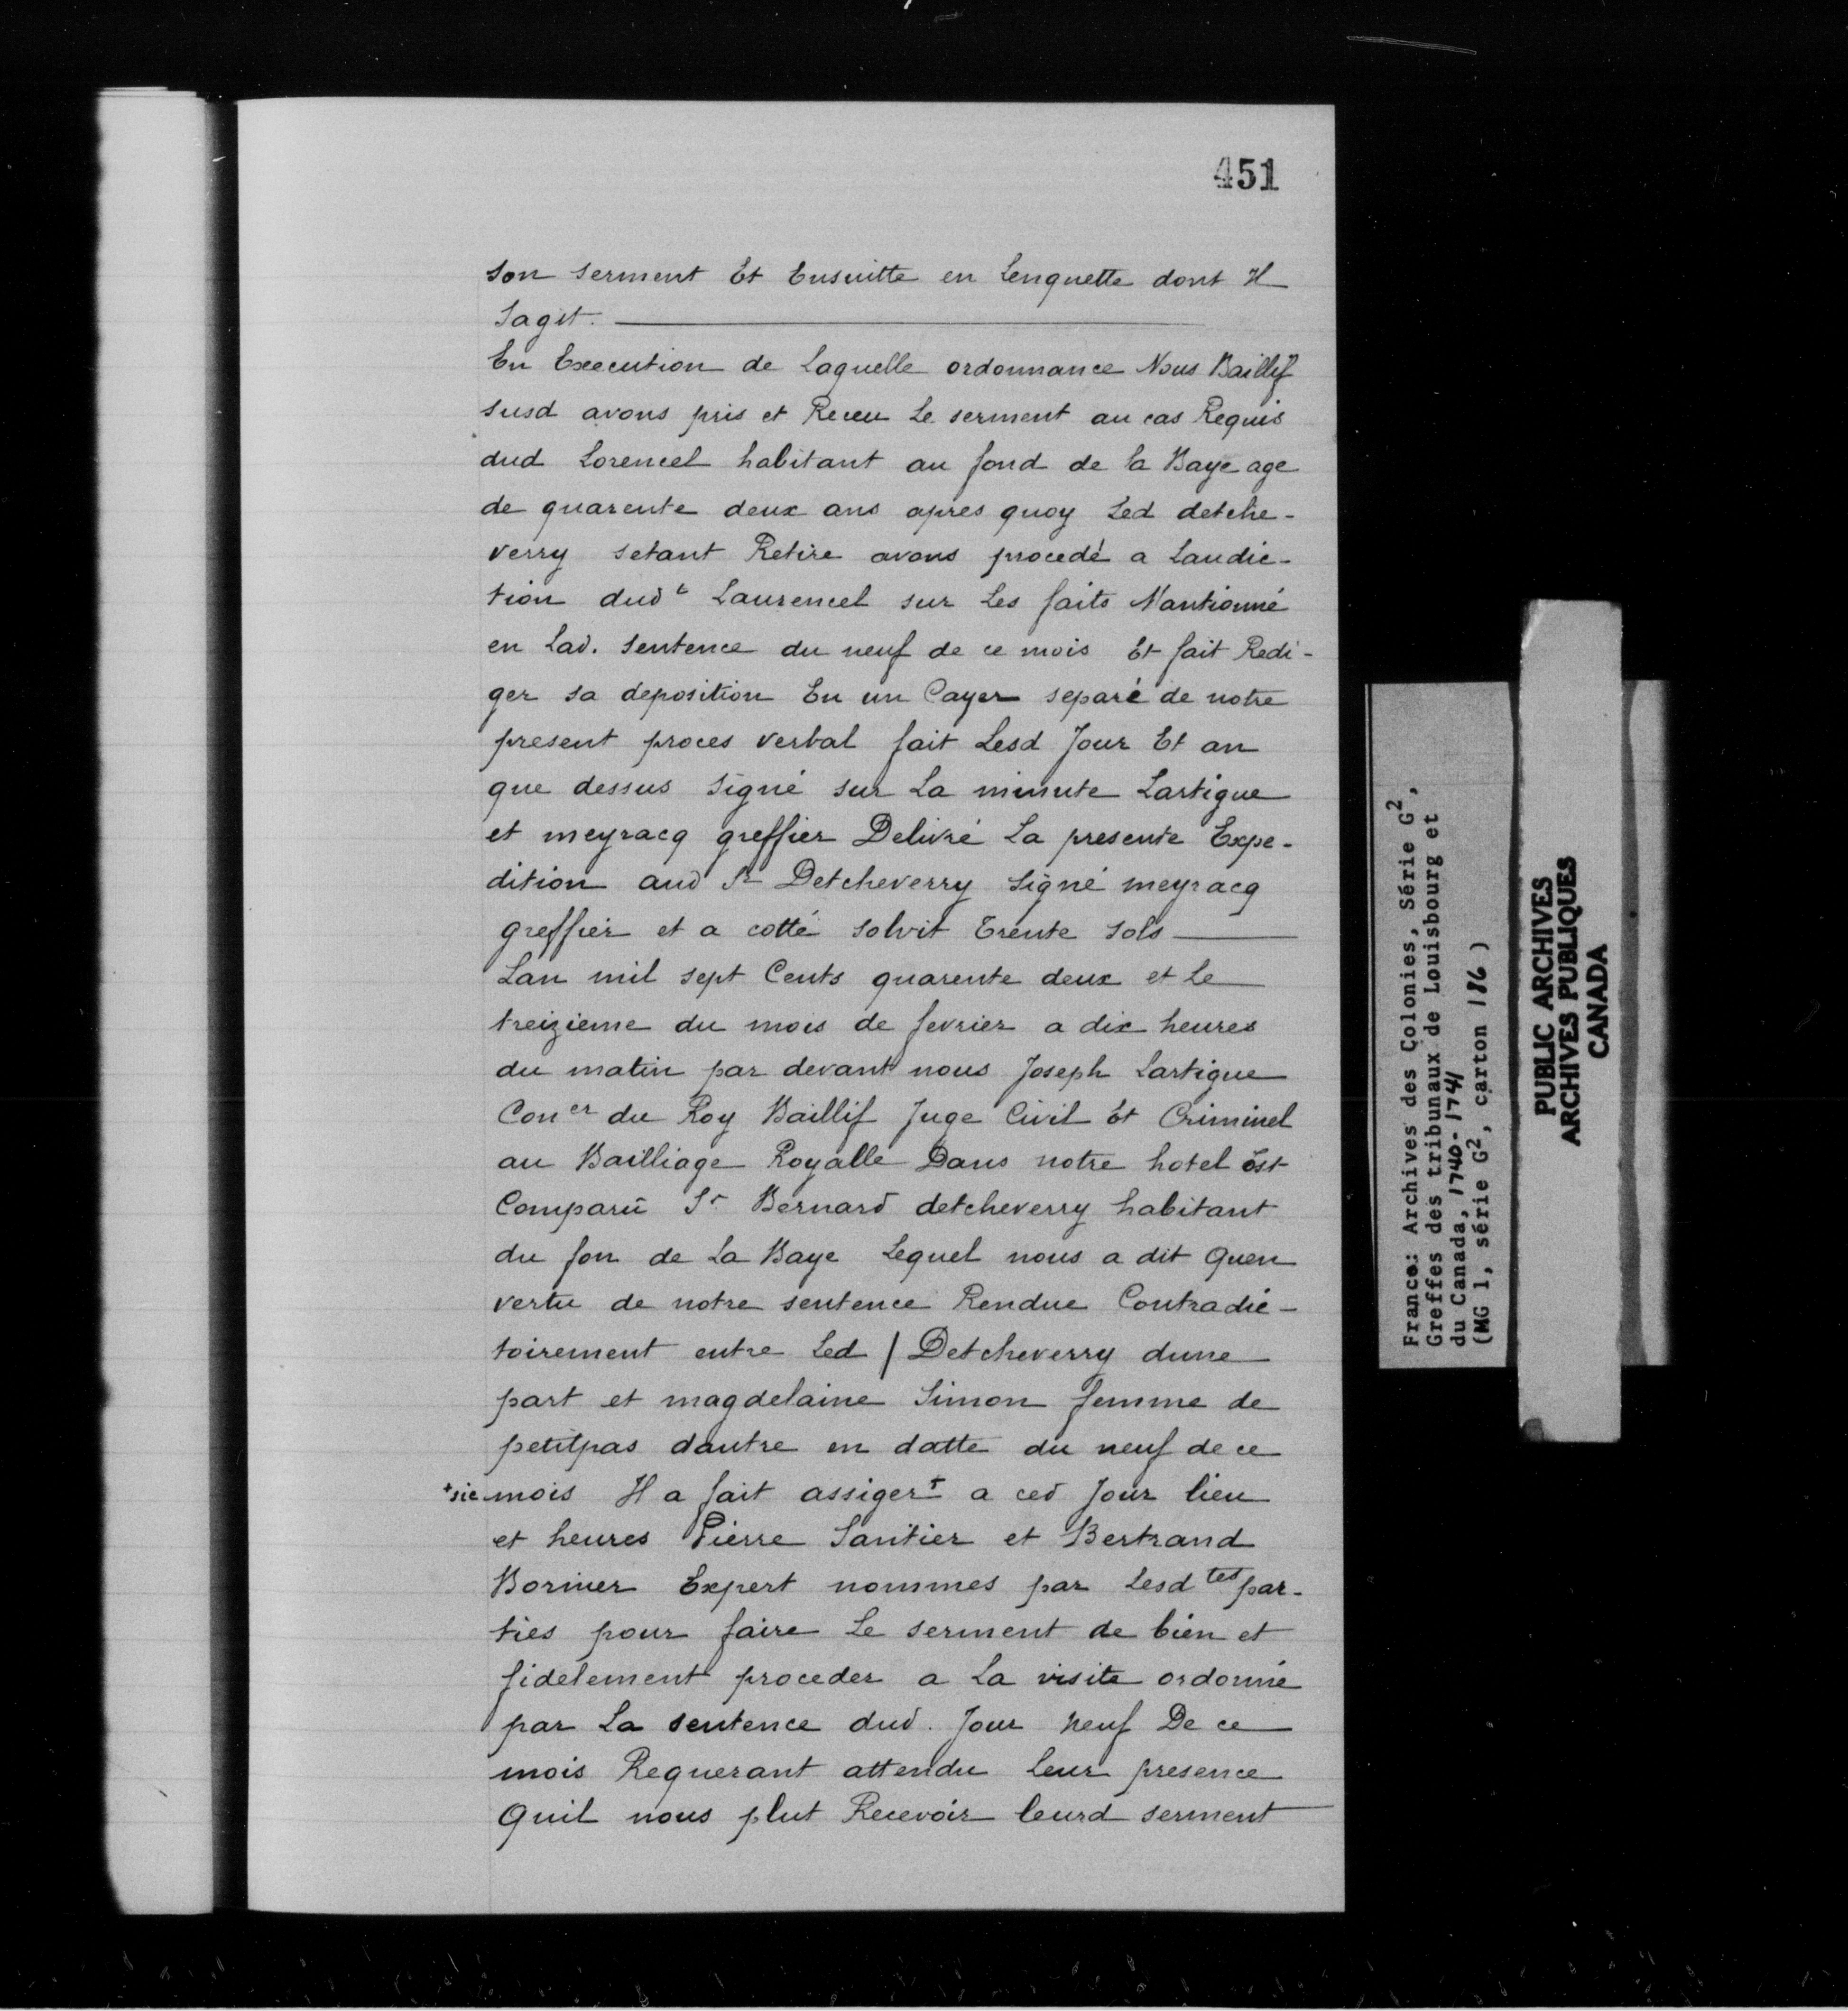 451
son serment Et Ensuitte en Lenquette dont Il
Sagit.
En Execution de Laquelle ordonnance Nous Baillif
susd avons pris et Receu Le serment au cas Requis
dud Lorencel habitant au fond de la Baye age
de quarente deux ans apres quoy Led detche-
verry setant Retire avons procedé a Laudic-
tion dudt Laurencel sur Les faits Mantionné
en Lad. Sentence du neuf de ce mois Et fait Redi-
ger sa deposition En un Cayer separé de notre
present proces verbal fait Lesd Jour Et an
que dessus Signé sur La minute Lartigue
et meyracq greffier Delivré La presente Expe-
dition aud Sr Detcheverry Signé meyracq
greffier et a cotté solvit Trente sols
Lan mil sept Cents quarente deux et Le
treizieme du mois de fevrier a dix heures
du matin par devant nous Joseph Lartigue
Coner du Roy Baillif Juge Civil Et Criminel
au Bailliage Royalle Dans notre hotel Est
Comparû Sr Bernard detcheverry habitant
du fon de La Baye Lequel nous a dit Quen
vertu de notre sentence Rendue Contradic-
toirement entre Led / Detcheverry dune
part et magdelaine Simon femme de
petitpas dautre en datte du neuf de ce
+sic mois Il a fait assiger+ a ced Jour lieu
et heures Pierre Santier et Bertrand
Boriner Expert nommes par Lesdtes par-
ties pour faire Le serment de bien et
fidelement proceder a La visite ordonné
par La sentence dud. Jour neuf De ce
mois Requerant attendu Leur presence
Quil nous plut Recevoir leurd serment
France: Archives des Colonies, Série G2,
Greffes des tribunaux de Louisbourg et
du Canada, 1740-1741
(MG 1, série G2, carton 186)
PUBLIC ARCHIVES
ARCHIVES PUBLIQUES
CANADA